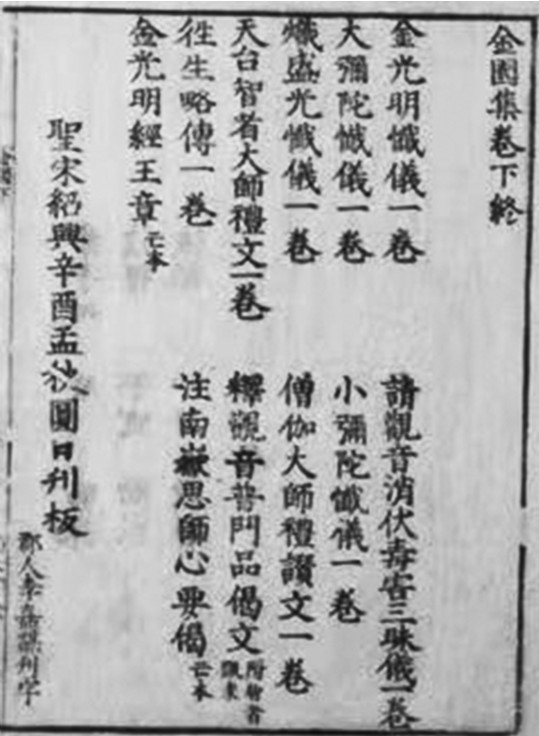 金園集卷下終
金光明懺儀一卷
請觀音消伏毒害三昧儀一卷
大彌陀懺儀一卷
小彌陀懺儀一卷
熾盛光懺儀一卷
僧伽大師禮讚文一卷
天台智者大師禮文一卷
釋觀音普門品偈文
徃生略傳一卷
注南嶽思師心要偈亡本
金光明經王章亡本
聖宋紹興辛酉孟秋圓日刋板
郡人李
刋字